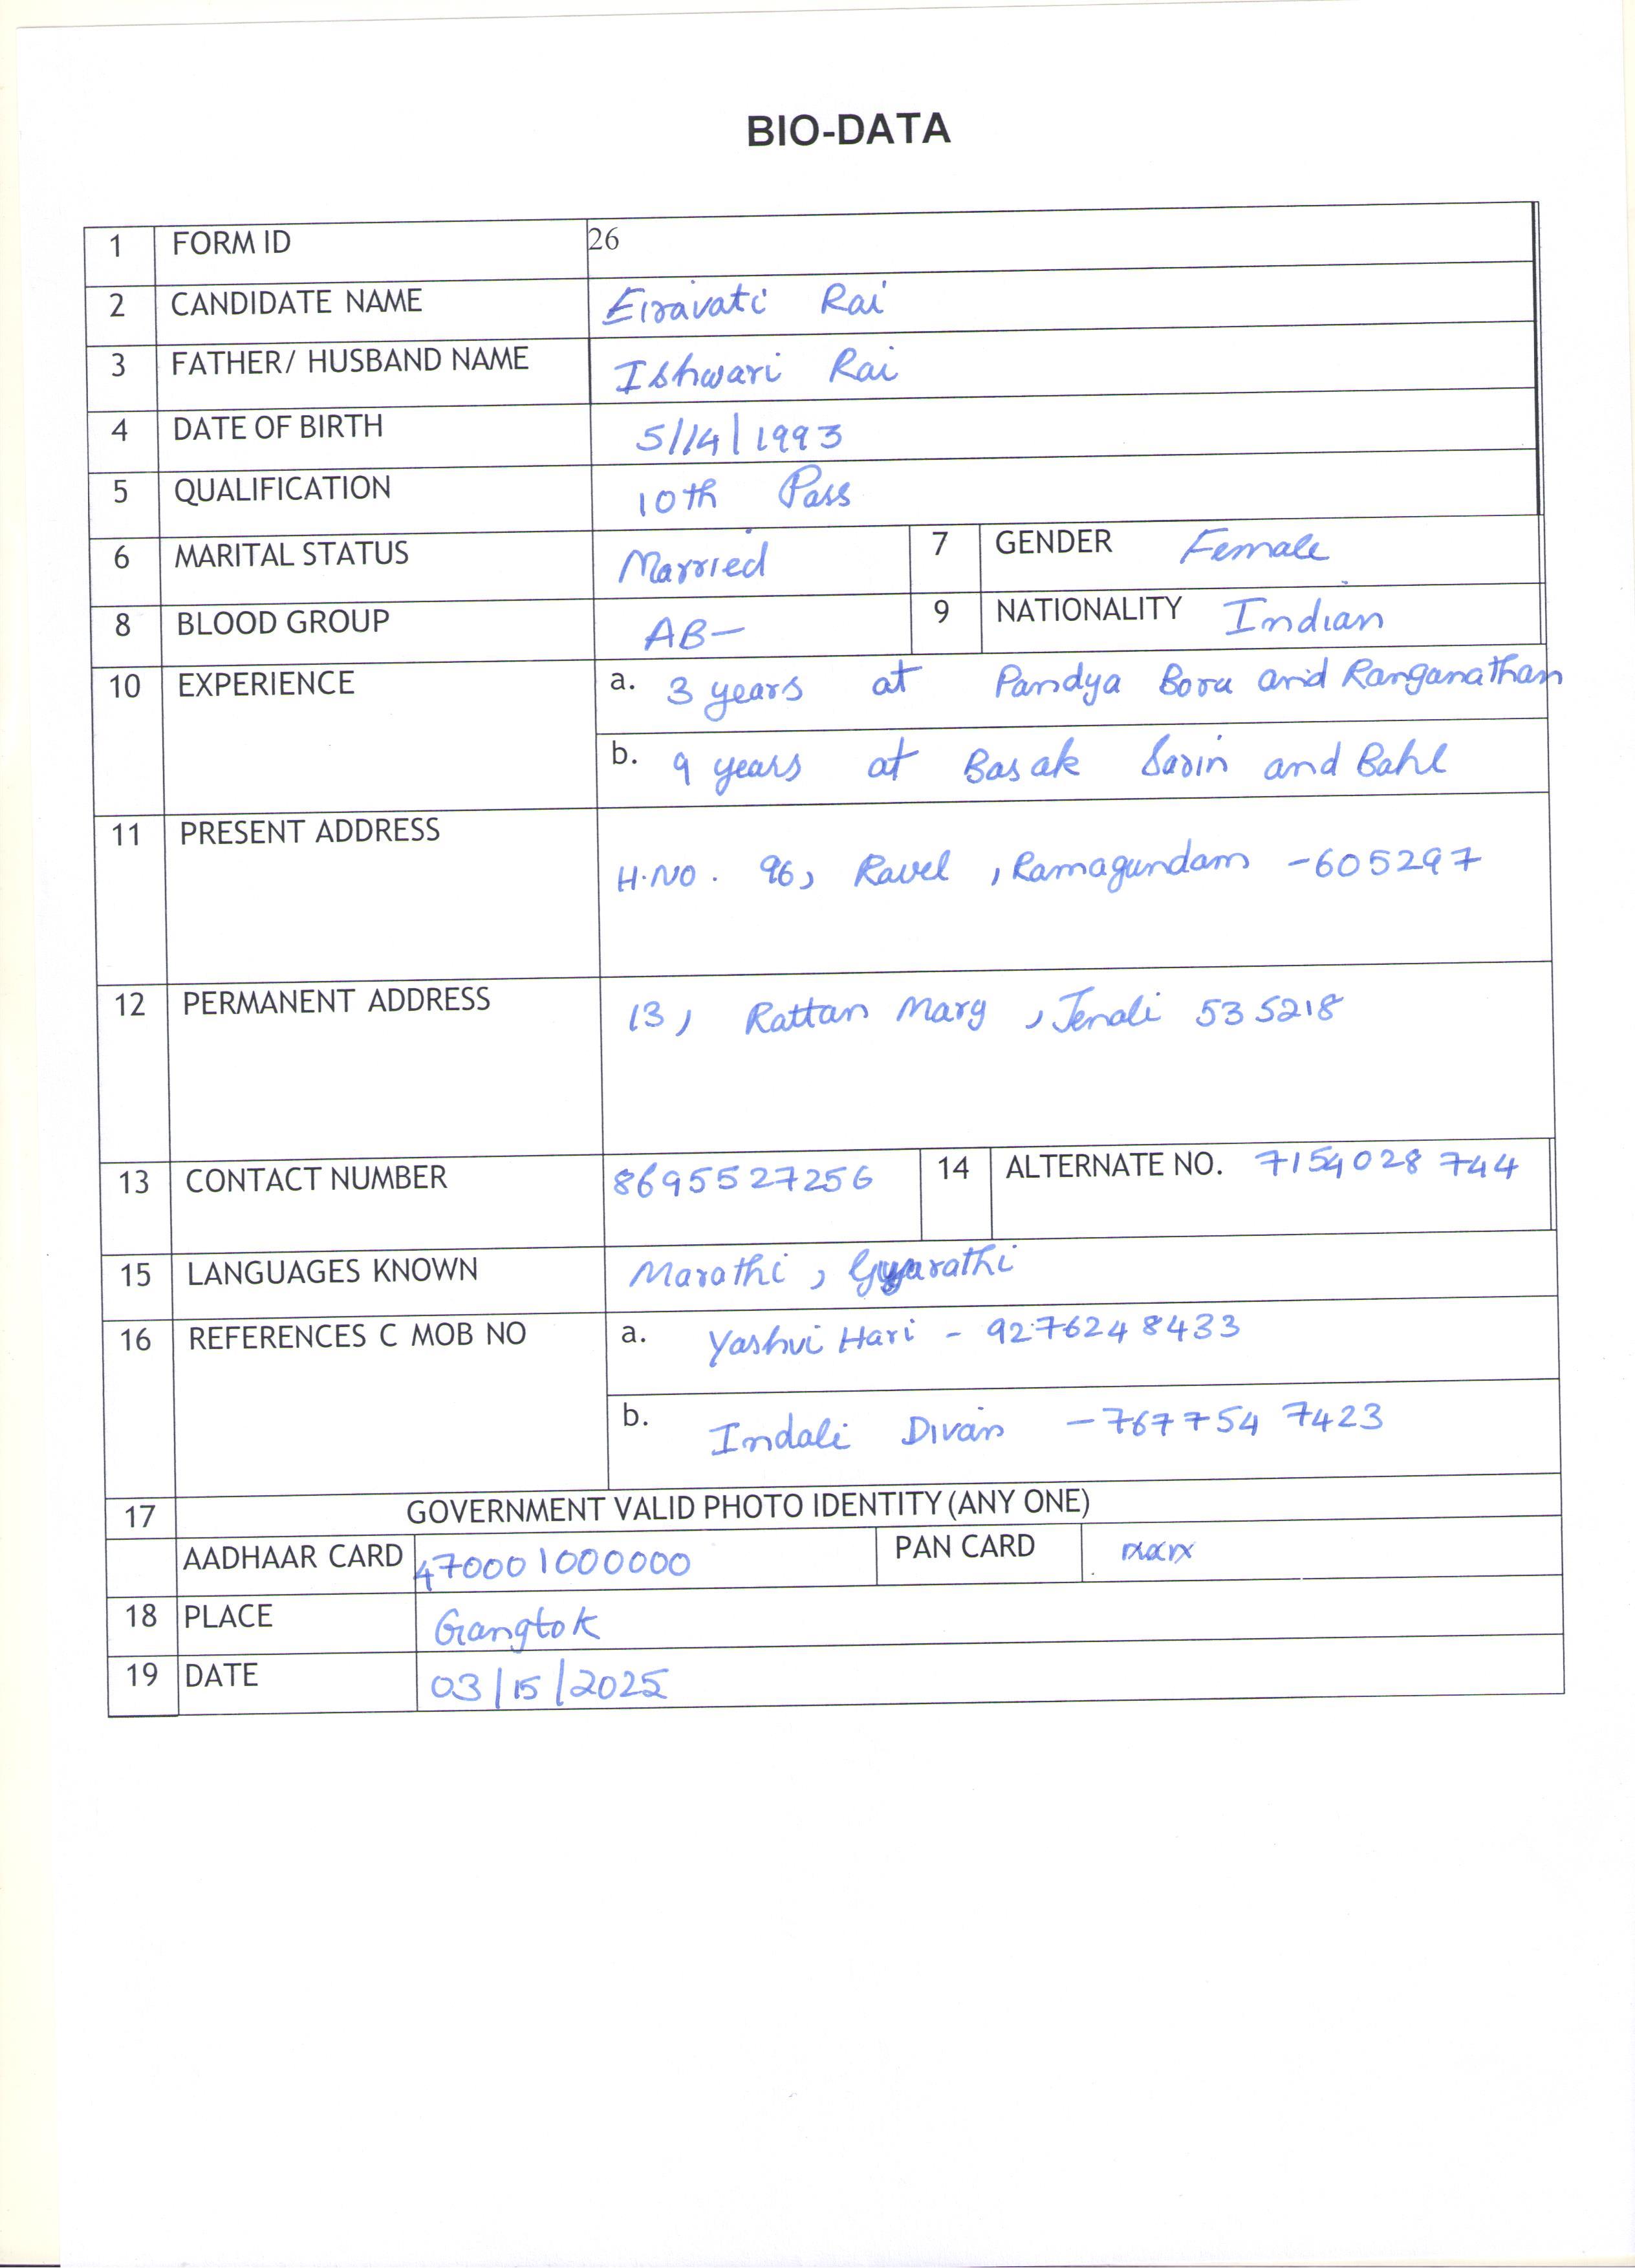 BIO-DATA
1 FORM ID 26
2 CANDIDATE NAME Eiravati Rai
3 FATHER/ HUSBAND NAME Ishwari Rai
4 DATE OF BIRTH 5/14/1993
5 QUALIFICATION 10th Pass
6 MARITAL STATUS Married 7 GENDER Female
8 BLOOD GROUP AB- 9 NATIONALITY Indian
10 EXPERIENCE a. 3 years at Pandya Bora and Ranganathan
b. 9 years at Basak Sarin and Bahl
11 PRESENT ADDRESS
H.NO. 96, Ravel, Ramagundam -605297
12 PERMANENT ADDRESS 13, Rattan Marg, Tenali 535218
13 CONTACT NUMBER 8695527256 14 ALTERNATE NO. 7154028744
15 LANGUAGES KNOWN Marathi, Gujarathi
16 REFERENCES C MOB NO a. Yashvi Hari - 9276248433
b. Indali Divan - 7677547423
17 GOVERNMENT VALID PHOTO IDENTITY (ANY ONE)
AADHAAR CARD 470001000000 PAN CARD
18 PLACE Gangtok
19 DATE 03/15/2025